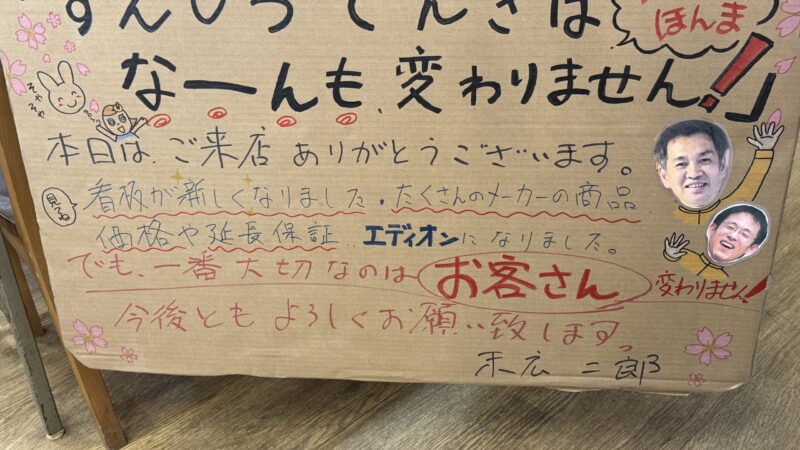 すんひろでんきは ほんま
なーんも、変わりません!」
そやそや
本日は、ご来店 ありがとうございます。
見てね
看板が新しくなりました・たくさんのメーカーの商品
価格や延長保証、エディオンになりました。
でも、一番大切なのは お客さん 変わりません!
今後とも よろしくお願い致します
末広 二郎